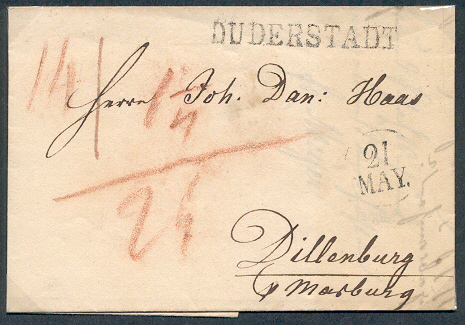 DUDERSTADT
Herrn Joh. Dan: Haas
21
MAY.
Dillenburg
p Marburg